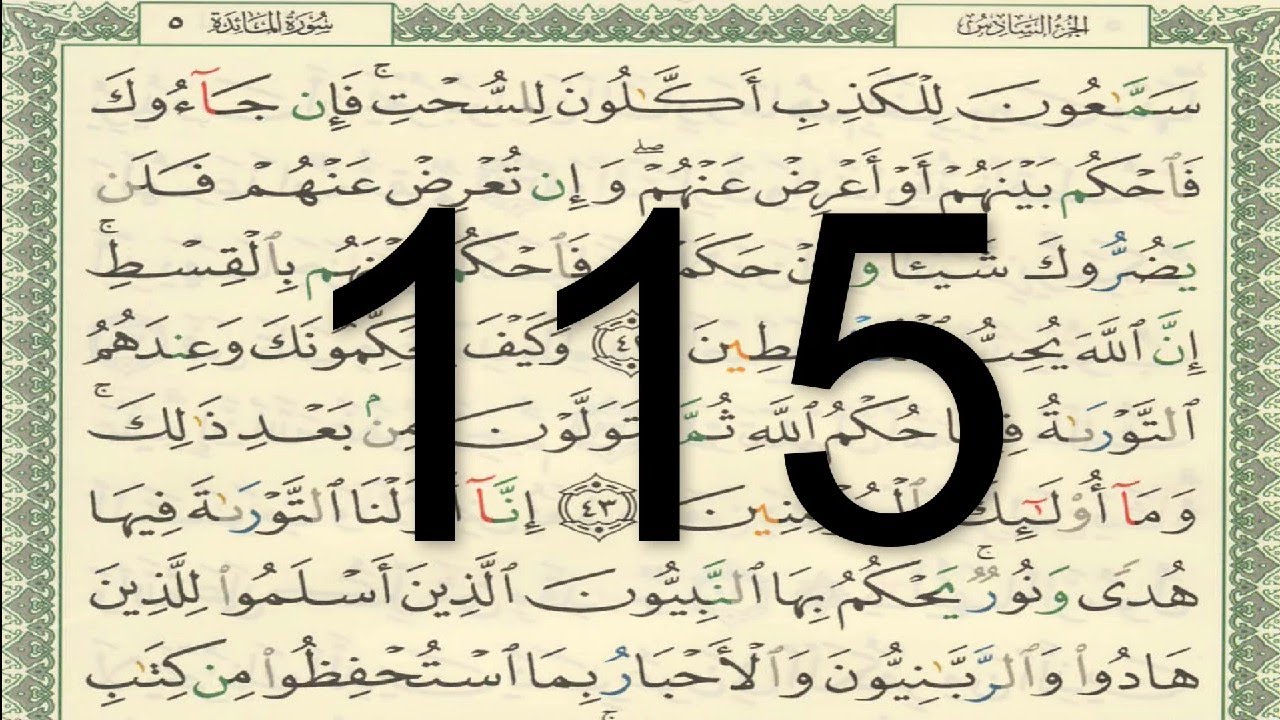 الجزء السادس
سُورَةُ المَائدَة ٥
سَمَّٰعُونَ لِلْكَذِبِ أَكَّٰلُونَ لِلسُّحْتِ ۚ فَإِن جَآءُوكَ
فَٱحْكُم بَيْنَهُمْ أَوْ أَعْرِضْ عَنْهُمْ ۖ وَإِن تُعْرِضْ عَنْهُمْ فَلَن
يَضُرُّوكَ شَيْـًٔا وَإِنْ حَكَمْتَ فَٱحْكُم بَيْنَهُم بِٱلْقِسْطِ ۚ
إِنَّ ٱللَّهَ يُحِبُّ ٱلْمُقْسِطِينَ ٤٢ وَكَيْفَ يُحَكِّمُونَكَ وَعِندَهُمُ
ٱلتَّوْرَىٰةُ فِيهَا حُكْمُ ٱللَّهِ ثُمَّ يَتَوَلَّوْنَ مِنۢ بَعْدِ ذَٰلِكَ ۚ
وَمَآ أُو۟لَٰٓئِكَ بِٱلْمُؤْمِنِينَ ٤٣ إِنَّآ أَنزَلْنَا ٱلتَّوْرَىٰةَ فِيهَا
هُدًى وَنُورٌ ۚ يَحْكُمُ بِهَا ٱلنَّبِيُّونَ ٱلَّذِينَ أَسْلَمُوا۟ لِلَّذِينَ
هَادُوا۟ وَٱلرَّبَّٰنِيُّونَ وَٱلْأَحْبَارُ بِمَا ٱسْتُحْفِظُوا۟ مِن كِتَٰبِ
115